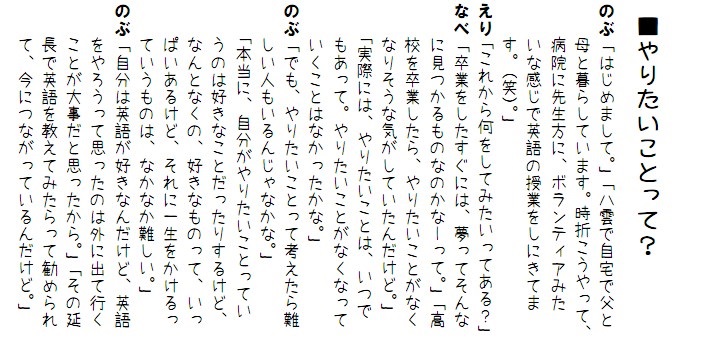 ■やりたいことって？
のぶ「はじめまして。」「八雲で自宅で父と
母と暮らしています。時折こうやって、
病院に先生方に、ボランティアみた
いな感じで英語の授業をしにきてま
す。（笑）。」
えり「これから何をしてみたいってある？」
なべ「卒業をしたすぐには、夢ってそんな
に見つかるものなのかなーって。」「高
校を卒業したら、やりたいことがなく
なりそうな気がしていたんだけど。」
「実際には、やりたいことは、いつで
もあって。やりたいことがなくなって
いくことはなかったかな。」
のぶ「でも、やりたいことって考えたら難
しい人もいるんじゃなかな。」
「本当に、自分がやりたいことってい
うのは好きなことだったりするけど、
なんとなくの、好きなものって、いっ
ぱいあるけど、それに一生をかけるっ
ていうものは、なかなか難しい。」
のぶ「自分は英語が好きなんだけど、英語
をやろうって思ったのは外に出て行く
ことが大事だと思ったから。」「その延
長で英語を教えてみたらって勧められ
て、今につながっているんだけど。」